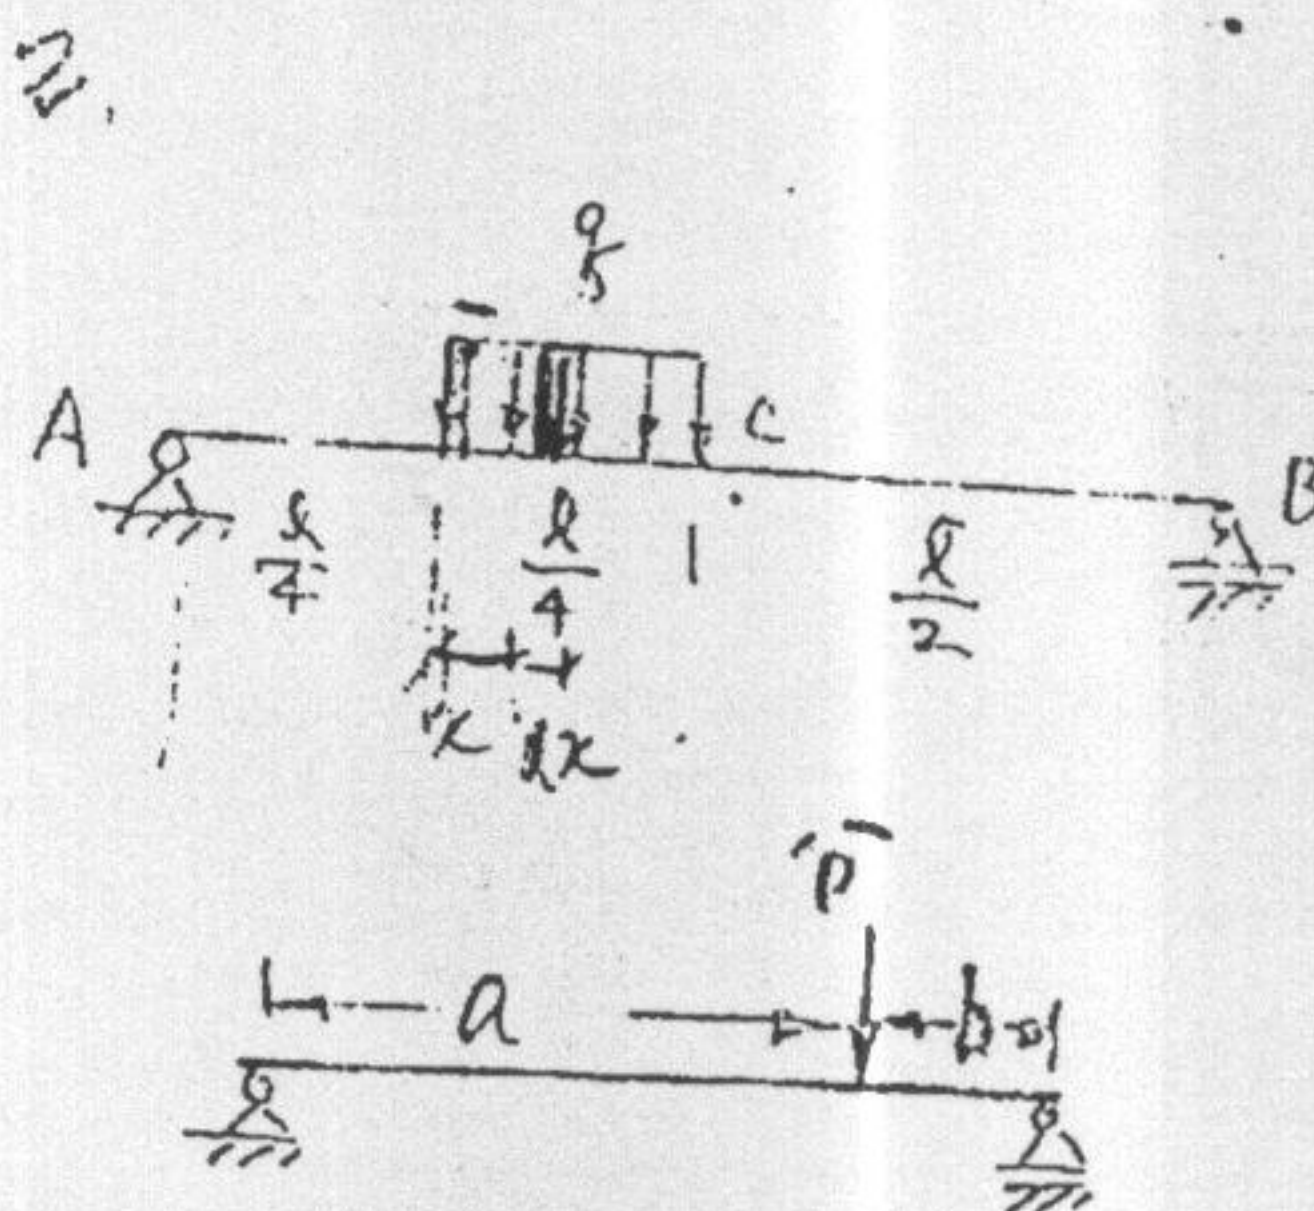 q
A
C
B
l/4
l/4
l/2
x
dx
P
a
b